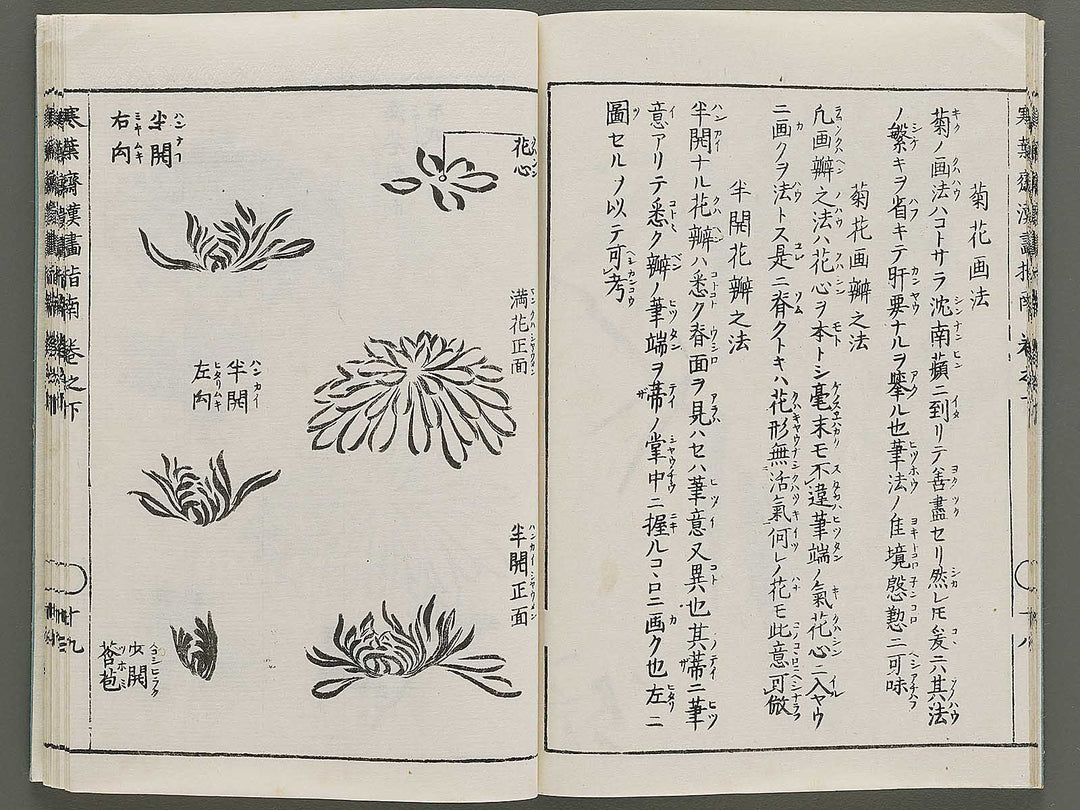 菊花画法
菊ノ画法ハコトサラ沈南蘋ニ到リテ善盡セリ然レ𪜈爰ニハ其法
ノ繁キヲ省キテ肝要ナルヲ擧ル也筆法ノ佳境慇懃ニ可味
菊花画瓣之法
凡画瓣之法ハ花心ヲ本トシ毫末モ不違筆端ノ氣花心ニ入ヤウ
ニ画クヲ法トス是ニ脊クトキハ花形無活氣何レノ花モ此意可倣
半開花瓣之法
半開ナル花瓣ハ悉ク脊面ヲ見ハセハ筆意又異也其蒂ニ筆
意アリテ悉ク瓣ノ筆端ヲ蒂ノ掌中ニ握ルコヽロニ画ク也左ニ
圖セルヲ以テ可考
花心
満花正面
半開正面
半開
右向
半開
左向
虫開
莟苞
寒葉齋漢畫指南 巻之下
十九